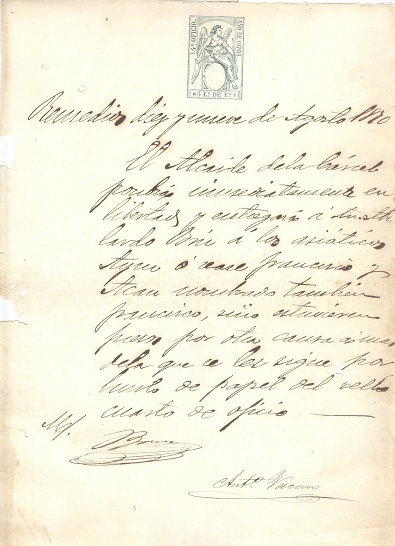 4º OFICIO. AÑO DE 1870
5 Cs. DE Eº.
Remedios diez y nueve de Agosto 1870
El Alcaide de la Cárcel
pondrá inmediatamente en
libertad y entregará á Dn.
Bru á los asiáticos
ó sea francisco y
Acan nombrado también
francisco, sino estuvieren
presos por otra causa á mas
de la que se les sigue por
hurto de papel del sello
cuarto de oficio.
Anto. Vacaro